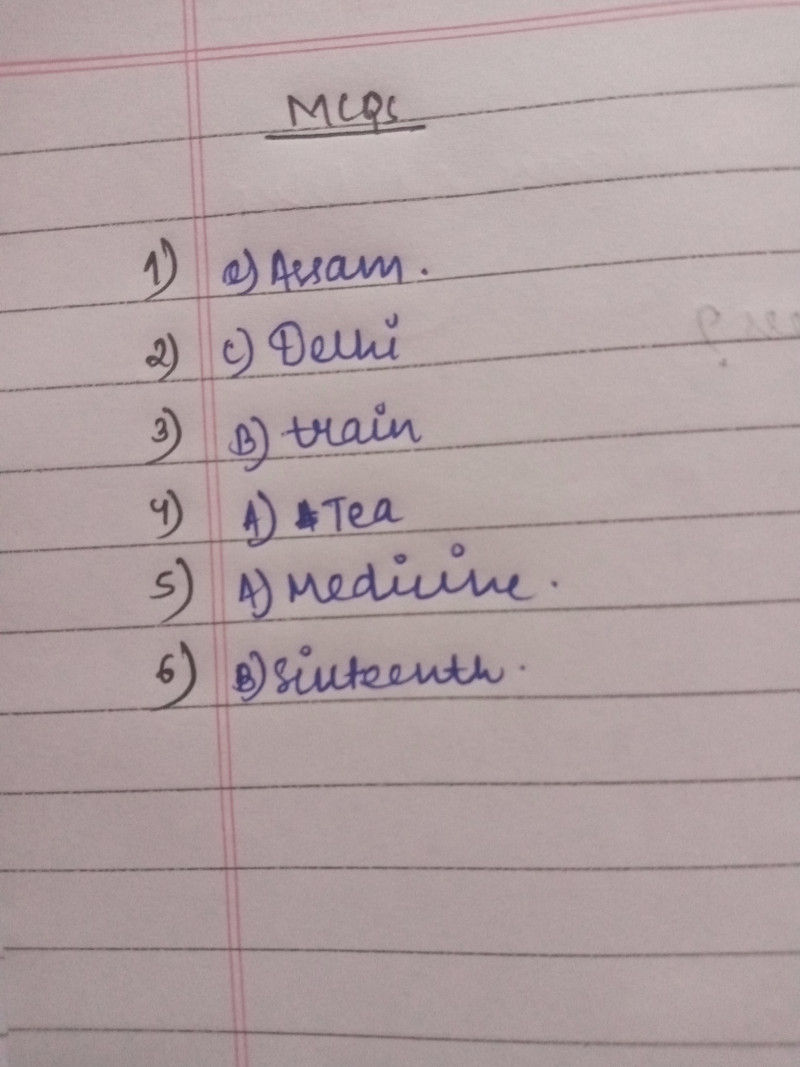 MCQs
1) a) Assam.
2) c) Delhi
3) B) train
4) A) Tea
5) A) Medicine.
6) B) Sixteenth.